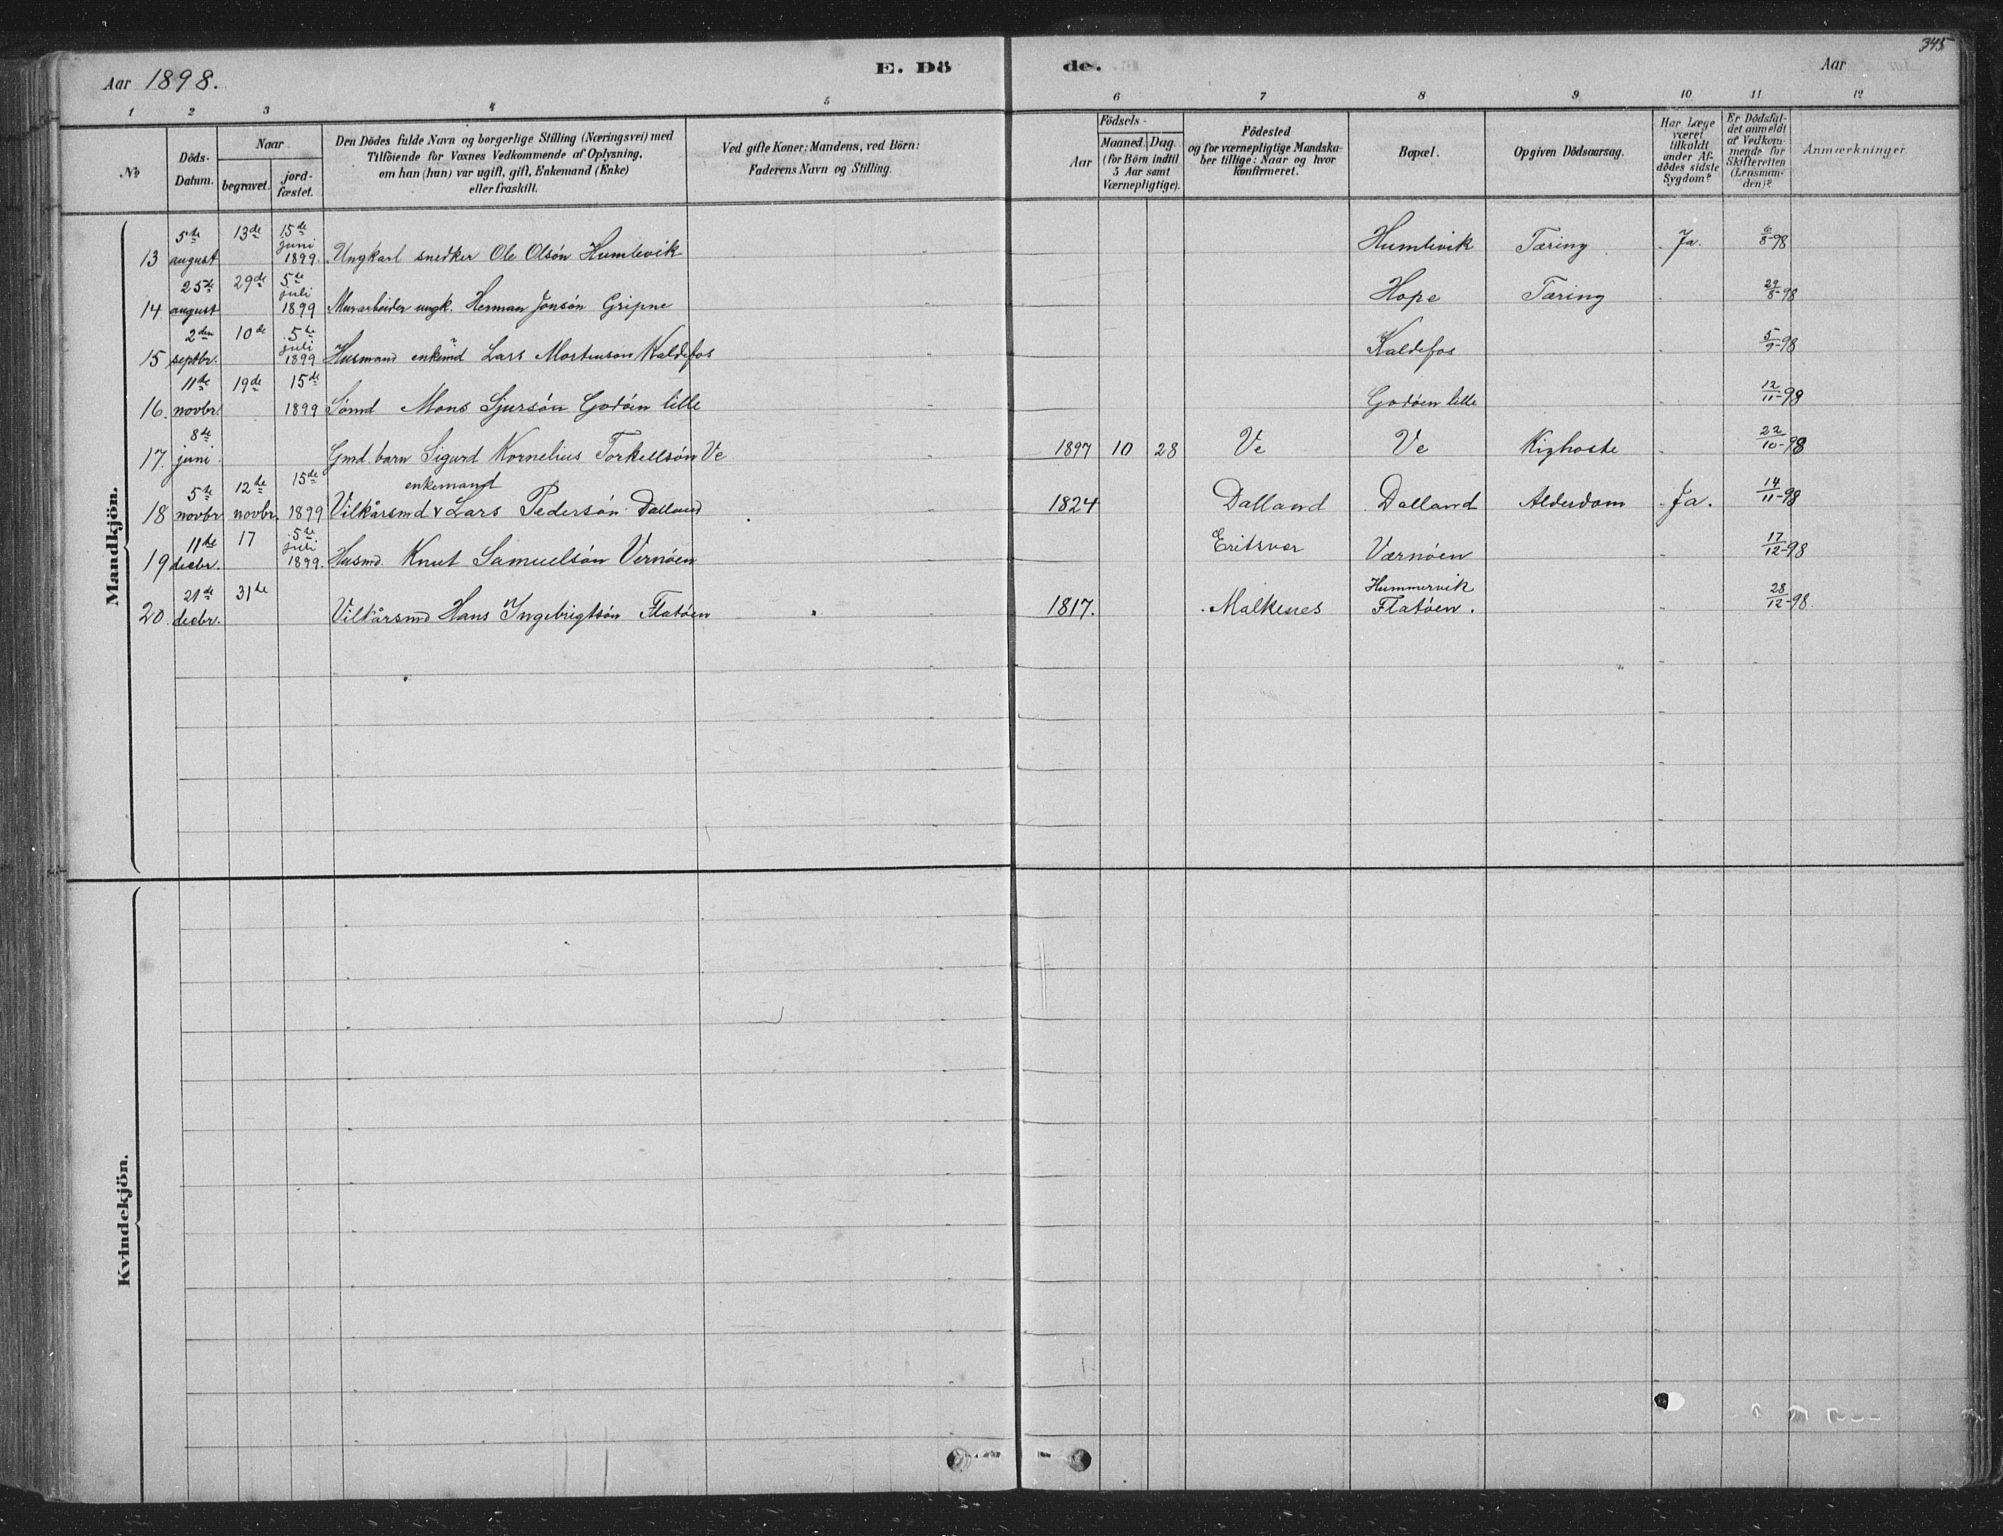 345
Aar 1898. E. Dö de. Aar
1 2 3 4 5 6 7 8 9 10 11 12
No
Döds-Datum.
Naar
begravet.
jord-fæstet.
Den Dödes fulde Navn og borgerlige Stilling (Næringsvei) med
Tilföiende for Voxnes Vedkommende af Oplysning,
om han (hun) var ugift, gift, Enkemand (Enke)
eller fraskilt.
Ved gifte Koner: Mandens, ved Börn:
Faderens Navn og Stilling.
Födsels-
Aar
Maaned. Dag.
(for Börn indtil
5 Aar samt
Værnepligtige).
Födested
og for værnepligtige Mandska-
ber tillige: Naar og hvor
konfirmeret.
Bopæl.
Opgiven Dödsaarsag.
Har Læge
været
tilkaldt
under Af-
dödes sidste
Sygdom?
Er Dödsfal-
det anmeldt
af Vedkom-
mende for
Skifteretten
(Lensman-
den)?
Anmærkninger.
Mandkjön.
13 5te august 13de 15de juni 1899. Ungkarl snedker Ole Olsøn Humlevik Humlevik Tæring Ja. 6/8-98
14 25te august 29de 5te juli 1899 Murarbeider ungk. Herman Jonsøn Gripne Hope Tæring 29/8-98
15 2den septbr. 10de 5te juli 1899 Husmand enkemd Lars Mortenson Kaldefos Kaldefos 5/9-98
16. 11de novbr. 19de 15de 1899 Sømd Mons Sjursøn Godøen lille Godøen lille 12/11-98
17. 8de juni Gmd. barn Sigurd Kornelius Torkellsøn Ve 1897 10 28 Ve Ve Kighoste 22/10-98
18 5te novbr 12te novbr. 15de 1899 Vilkårsmd enkemand Lars Pedersøn Dalland 1824 Dalland Dalland Alderdom Ja. 14/11-98
19 11de decbr. 17 5te juli 1899. Husmd Knut Samuelsøn VernøenVærnøen 17/12-98
20. 21de decbr. 31de Vilkårsmd Hans Ingebrigtsøn Flatøen 1817. Malkenes Hummervik Flatøen. 28/12-98.
Kvindekjön.